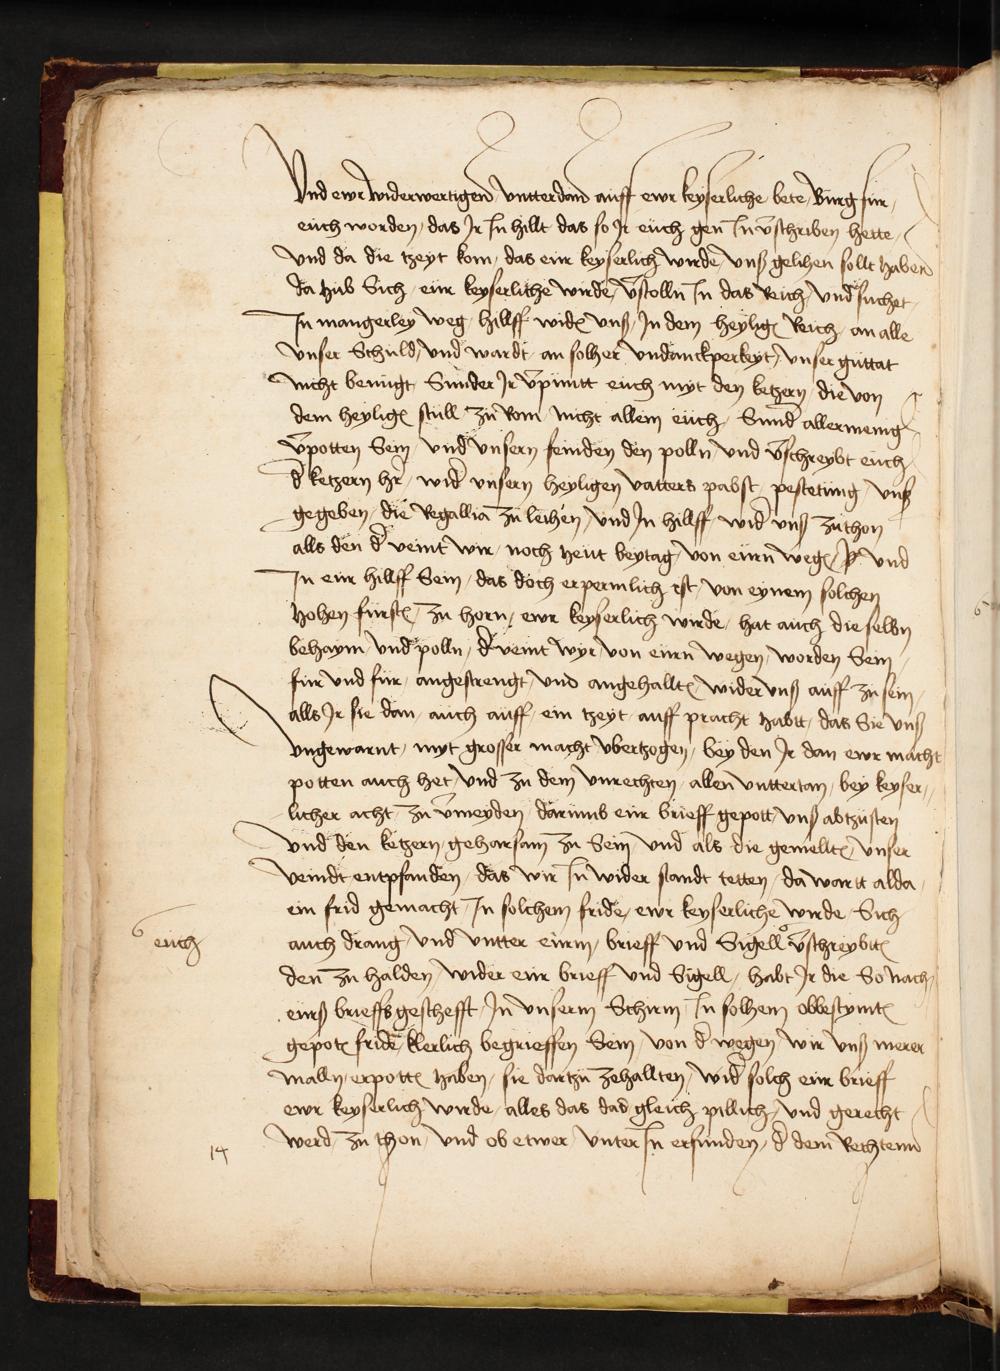 Vnd ewr widerwertigen vntterdan auff ewr keyserliche bete / Burg fur
euch worden / das Jr Jn hillt das so Jr euch gen Jn v̄schriben hette /
Vnd da die tzeyt kom / das eur keyserlich wirde / vnß gelihen sollt haben
da hub Sich / eur keyserliche wirde / v̄stolln Jn das Reich / vnd suchet
Jn mangerley weg / hillff wider vnß / Jn dem heylig Reich / an alle
vnser Schuld / vnd wardt / an solher vndanckperkeyt / vnser guttat
nicht benugt / Sunder Jr v̄pinntt euch myt den ketzern / die von
dem heylig stull zu Rom / nicht allein euch / Sund allermenig
v̄potten Sein / vnd vnsern feinden den polln / vnd v̄schreybt euch
d ketzern hr / wid vnsern heyligen vatters pabst / pestetung / vnß
gegeben / die Regallia zu leihen / vnd Jn hillff wid vnß zu thon
alls den d veint wir / noch heut beytag / von eurn weg / vnd
Jn eur hillff Sein / das doch erpermlich ist / von eynem solchen
hohen furst / zu horn / ewr keyserlich wirde / hat auch die selbn
behaym / vnd polln / d veint wyr / von eurn wegen / worden Sein /
fur vnd fur / angestrengt / vnd angehallt / wider vnß auff zu sein /
alls Jr sie dan / auch auff / ein tzeyt / auff pracht habtt / das Sie vnß
vngewarnt / myt grosser macht vbertzogen / bey den Jr dan ewr macht
potten auch het / vnd zu dem vnrechten / allen vnttertan / bey keyser /
licher acht / zu v̄meyden / darumb eur brieff gepott / vnß abtzusten
Vnd den ketzern / gehorsam zu Sein / vnd als die gemellt / vnser
veindt entpfanden / das wir Jn wider standt tetten / da wartt alda /
ein frid gemacht / Jn solchem fride / ewr keyserliche wirde / Sich
euch
auch drang / vnd vntter eurm / brieff vnd Sigell v̄schreybtt
den zu halden / wider eur brieff vnd Sigell / habt Jr die So nach /
eurß brieffs geschefft / Jn vnserm Schirm / Jn solhem obbestymt
gepot fride / klerlich begrieffen Sein / von d wegen / wir vnß merer
malln / erpott haben / sie dartzu zehallten / wid solch eur brieff
ewr keyserlich wirde / alles das dad gleich pillich / vnd gerecht
werd / zu thon / vnd ob etwer vnter Jn erfunden / d dem Rechtenn
14